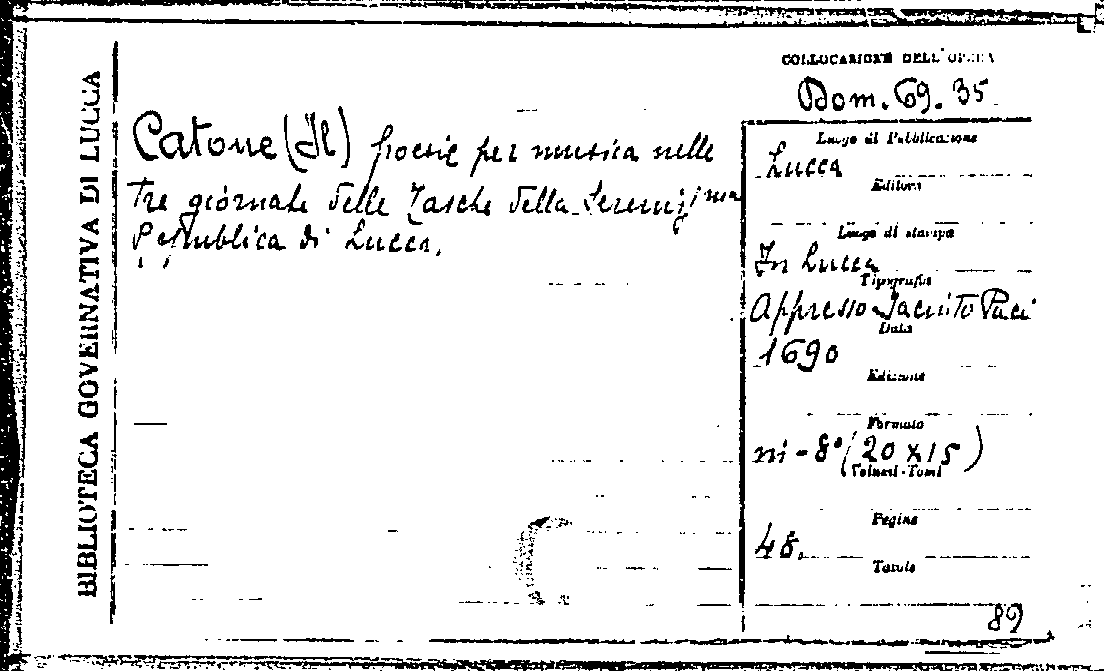 BIBLIOTECA GOVERNATIVA DI LUCCA
COLLOCAZIONE DELL'OPERA
Dom. 69. 35
Catone (Il) poesie per musica nelle
tre giornate delle Tasche della Serenissima
Repubblica di Lucca.
Luogo di Pubblicazione
Lucca
Editore
Luogo di stampa
In Lucca
Tipografia
Appresso Iacinto Paci
Data
1690
Edizione
Formato
in-8° (20 x 15)
Volumi - Tomi
Pagine
48.
Tavole
89